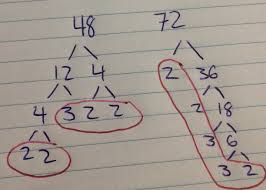 48 72
12 4 2 36
4 3 2 2 2 18
2 2 3 6
3 2